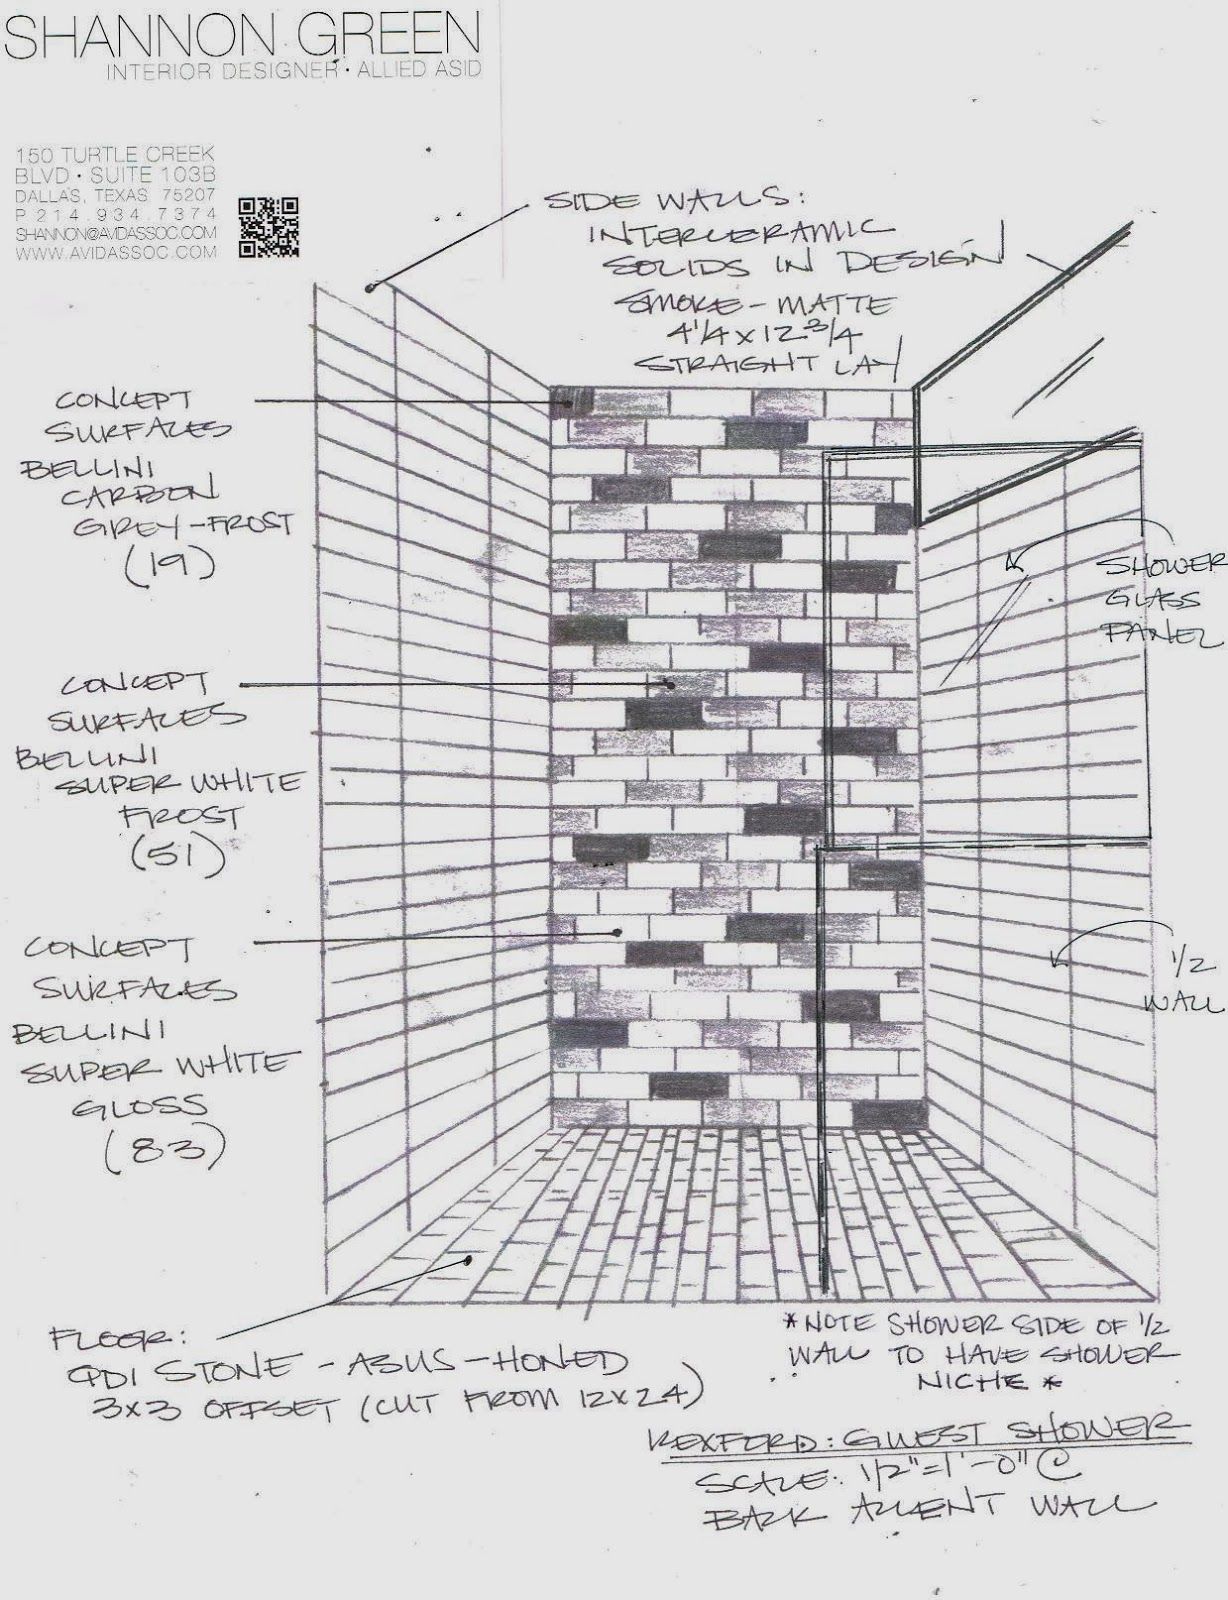 SHANNON GREEN
INTERIOR DESIGNER · ALLIED ASID
150 TURTLE CREEK
BLVD · SUITE 103B
DALLAS, TEXAS 75207
P 214.934.7374
SHANNON@AVIDASSOC.COM
WWW.AVIDASSOC.COM
SIDE WALLS:
INTERCERAMIC
SOLIDS IN DESIGN
SMOKE - MATTE
4 1/4 x 12 3/4
STRAIGHT LAY
CONCEPT
SURFACES
BELLINI
CARBON
GREY - FROST
(19)
SHOWER
GLASS
PANEL
CONCEPT
SURFACES
BELLINI
SUPER WHITE
FROST
(51)
CONCEPT
SURFACES
BELLINI
SUPER WHITE
GLOSS
(83)
1/2
WALL
FLOOR:
QDI STONE - ASUS - HONED
3x3 OFFSET (CUT FROM 12x24)
*NOTE SHOWER SIDE OF 1/2
WALL TO HAVE SHOWER
NICHE *
REXFORD: GUEST SHOWER
SCALE: 1/2"=1'-0" @
BACK ACCENT WALL